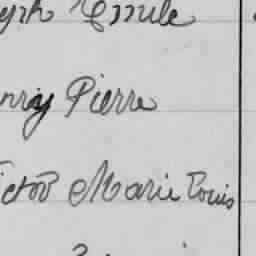 yph Emile
nry Pierre
ictor Marie Louis